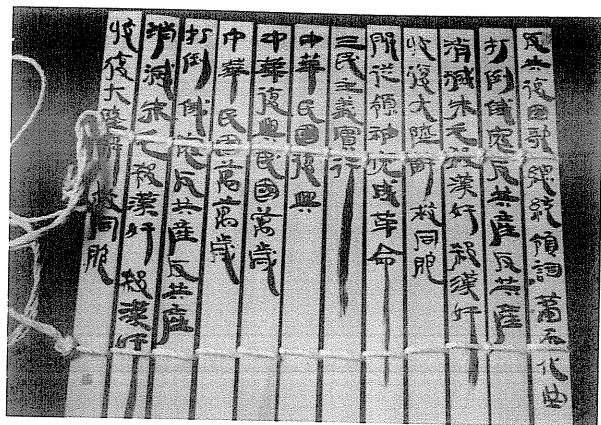 反共復國歌 總統領詞 蕭而化曲
打倒俄寇反共產反共產
消滅朱毛殺漢奸殺漢奸
收復大陸解救同胞
服從領袖完成革命
三民主義實行
中華民國復興
中華復興民國萬歲
中華民國萬萬歲
打倒俄寇反共產反共產
消滅朱毛殺漢奸殺漢奸
收復大陸解救同胞